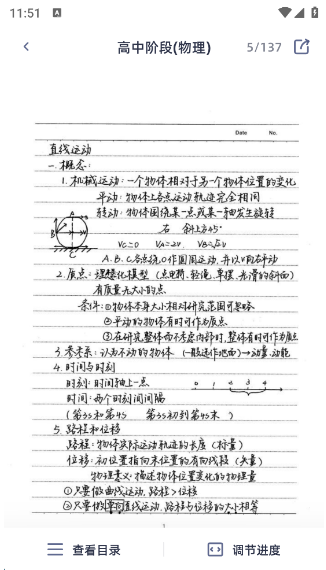 11:51 A
高中阶段(物理)
5/137
Date No.
直线运动
一.概念:
1.机械运动:一个物体相对于另一个物体位置的变化
平动:物体上各点运动轨迹完全相同
转动:物体围绕某一点或某一轴发生旋转
A
B
C
右 斜上方45°
Vc=0 VA=2v VB=√2v
A.B.C各点绕O作圆周运动,并以v向右平动
2.质点:理想化模型(点电荷、轻绳、单摆、光滑的斜面)
有质量无大小的点
条件:①物体本身大小相对研究范围可忽略
②平动的物体有时可作为质点
③在研究整体而不考虑内部时,整体有时可作为质点
3.参考系:认为不动的物体 (一般选作地面)→动量、动能
4.时间与时刻
时刻:时间轴上一点
0 1 2 3 4
时间:两个时刻间间隔
(第3s和第4s 第3s初到第4s末)
5.路程和位移
路程:物体实际运动轨迹的长度(标量)
位移:初位置指向末位置的有向线段(矢量)
物理意义:描述物体位置变化的物理量
①只要做曲线运动,路程>位移
②只要做单向直线运动,路程与位移的大小相等
1
查看目录
调节进度